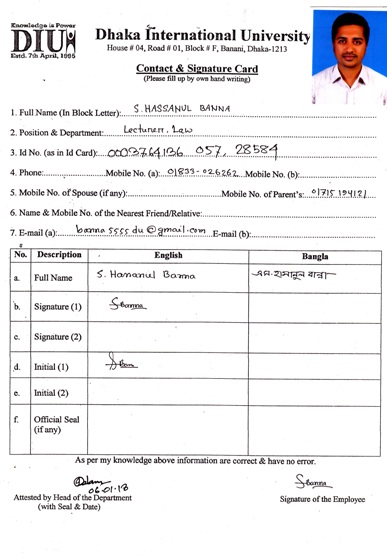 Knowledge is Power
DIU
Estd. 7th April, 1995
Dhaka International University
House # 04, Road # 01, Block # F, Banani, Dhaka-1213
Contact & Signature Card
(Please fill up by own hand writing)
1. Full Name (In Block Letter): S. HASSANUL BANNA
2. Position & Department: Lecturer, Law
3. Id No. (as in Id Card): 0003764136 057, 28584
4. Phone: Mobile No. (a): 01833-026262 Mobile No. (b):
5. Mobile No. of Spouse (if any): Mobile No. of Parent's: 01715194121
6. Name & Mobile No. of the Nearest Friend/Relative:
7. E-mail (a): banna5555du@gmail.com E-mail (b):
No. Description English Bangla
a. Full Name S. Hassanul Banna এস. হাসানুল বান্না
b. Signature (1) Sbanna
c. Signature (2)
d. Initial (1)
e. Initial (2)
f. Official Seal (if any)
As per my knowledge above information are correct & have no error.
06-01-18 Sbanna
Attested by Head of the Department Signature of the Employee
(with Seal & Date)